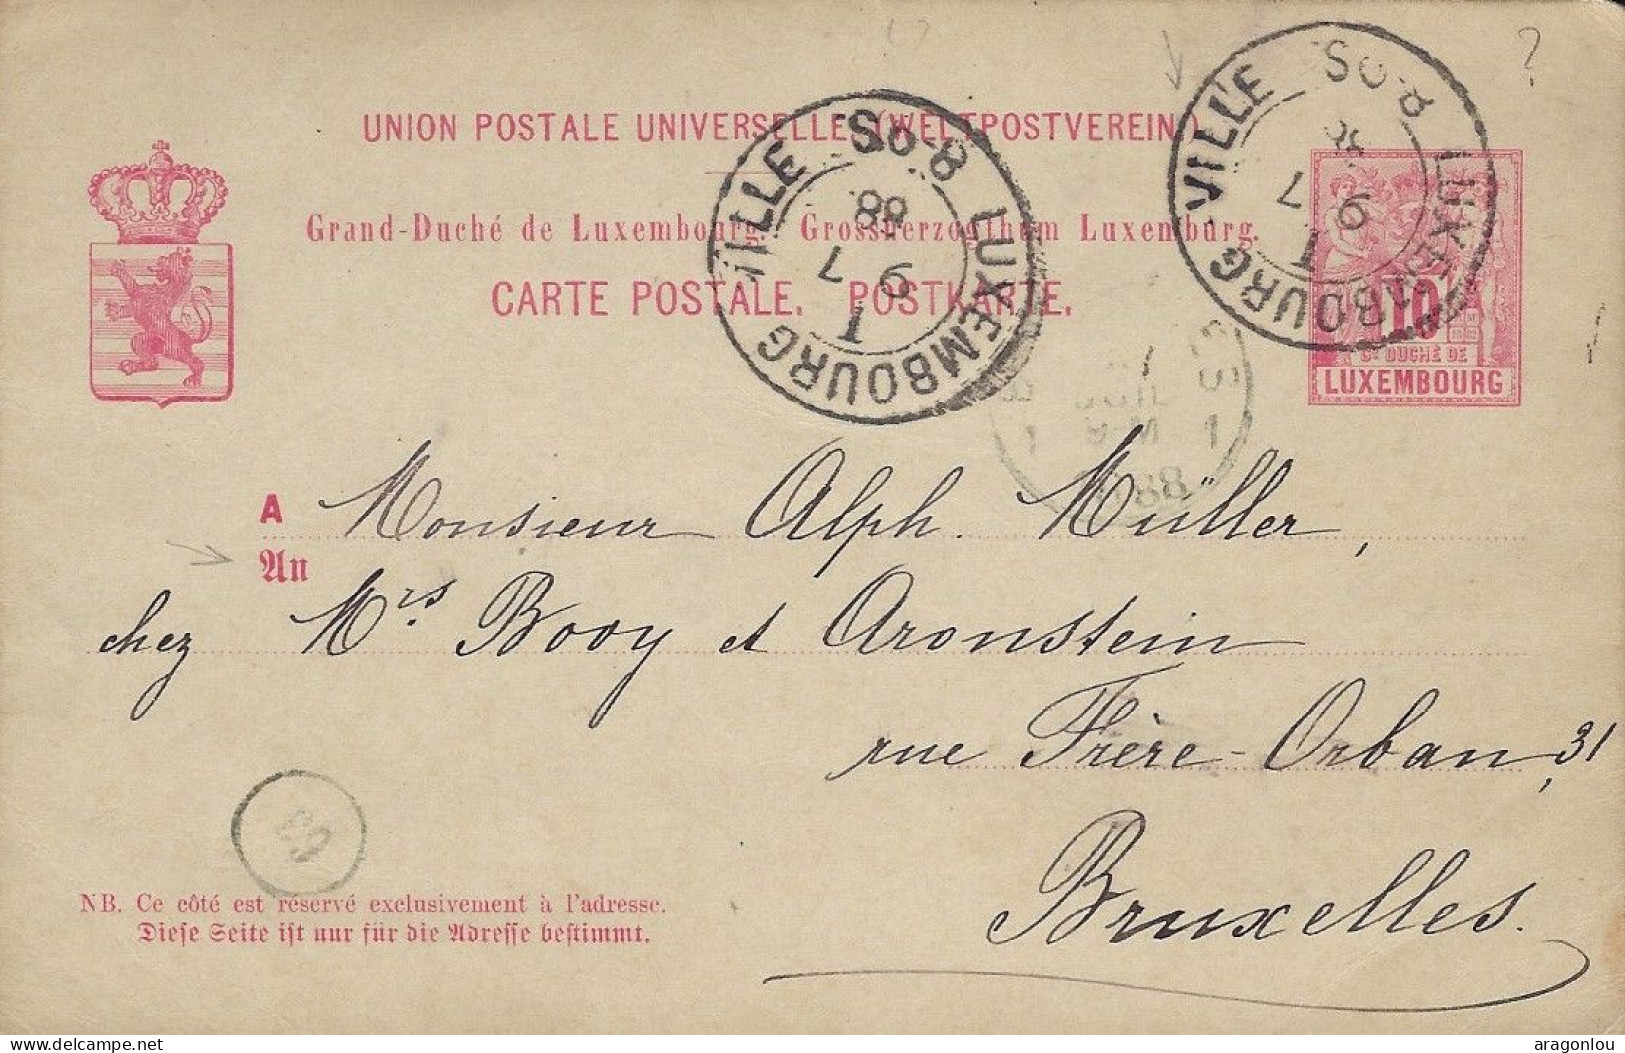 UNION POSTALE UNIVERSELLE. (WELTPOSTVEREIN)
Grand-Duché de Luxembourg. Grossherzogthum Luxemburg.
CARTE POSTALE. POSTKARTE.
LUXEMBOURG VILLE
88
LUXEMBOURG-VILLE
10
Gd DUCHÉ DE
LUXEMBOURG
1
1
88
A Monsieur Alph. Müller,
An
chez Mrs Booy et Aronstein
rue Frère-Orban, 31
Bruxelles.
NB. Ce côté est réservé exclusivement à l'adresse.
Diese Seite ist nur für die Adresse bestimmt.
?
delcampe.net
aragonlou